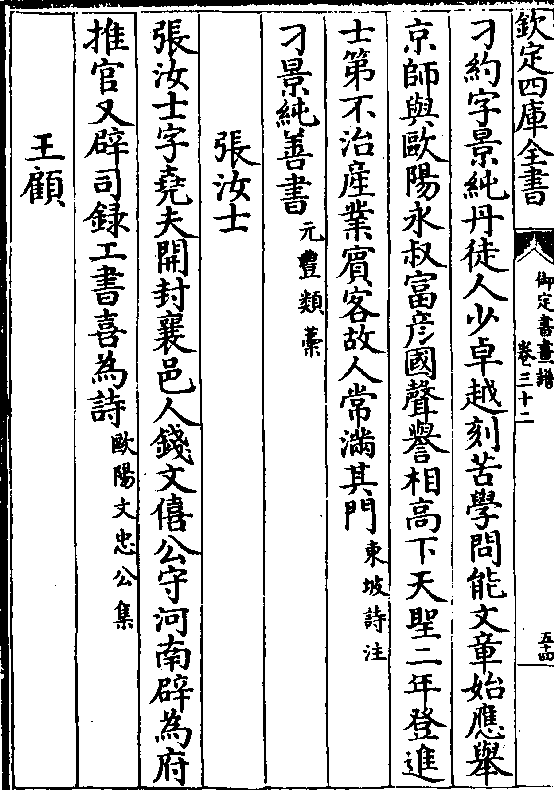 欽定四庫全書
御定書畫譜
卷三十二
五十四
刁約字景純丹徒人少卓越刻苦學問能文章始應舉
京師與歐陽永叔富彦國聲譽相高下天聖二年登進
士第不治産業賓客故人常滿其門東坡詩注
刁景純善書元豐類藁
張汝士
張汝士字堯夫開封襄邑人錢文僖公守河南辟為府
推官又辟司録工書喜為詩歐陽文忠公集
王顧